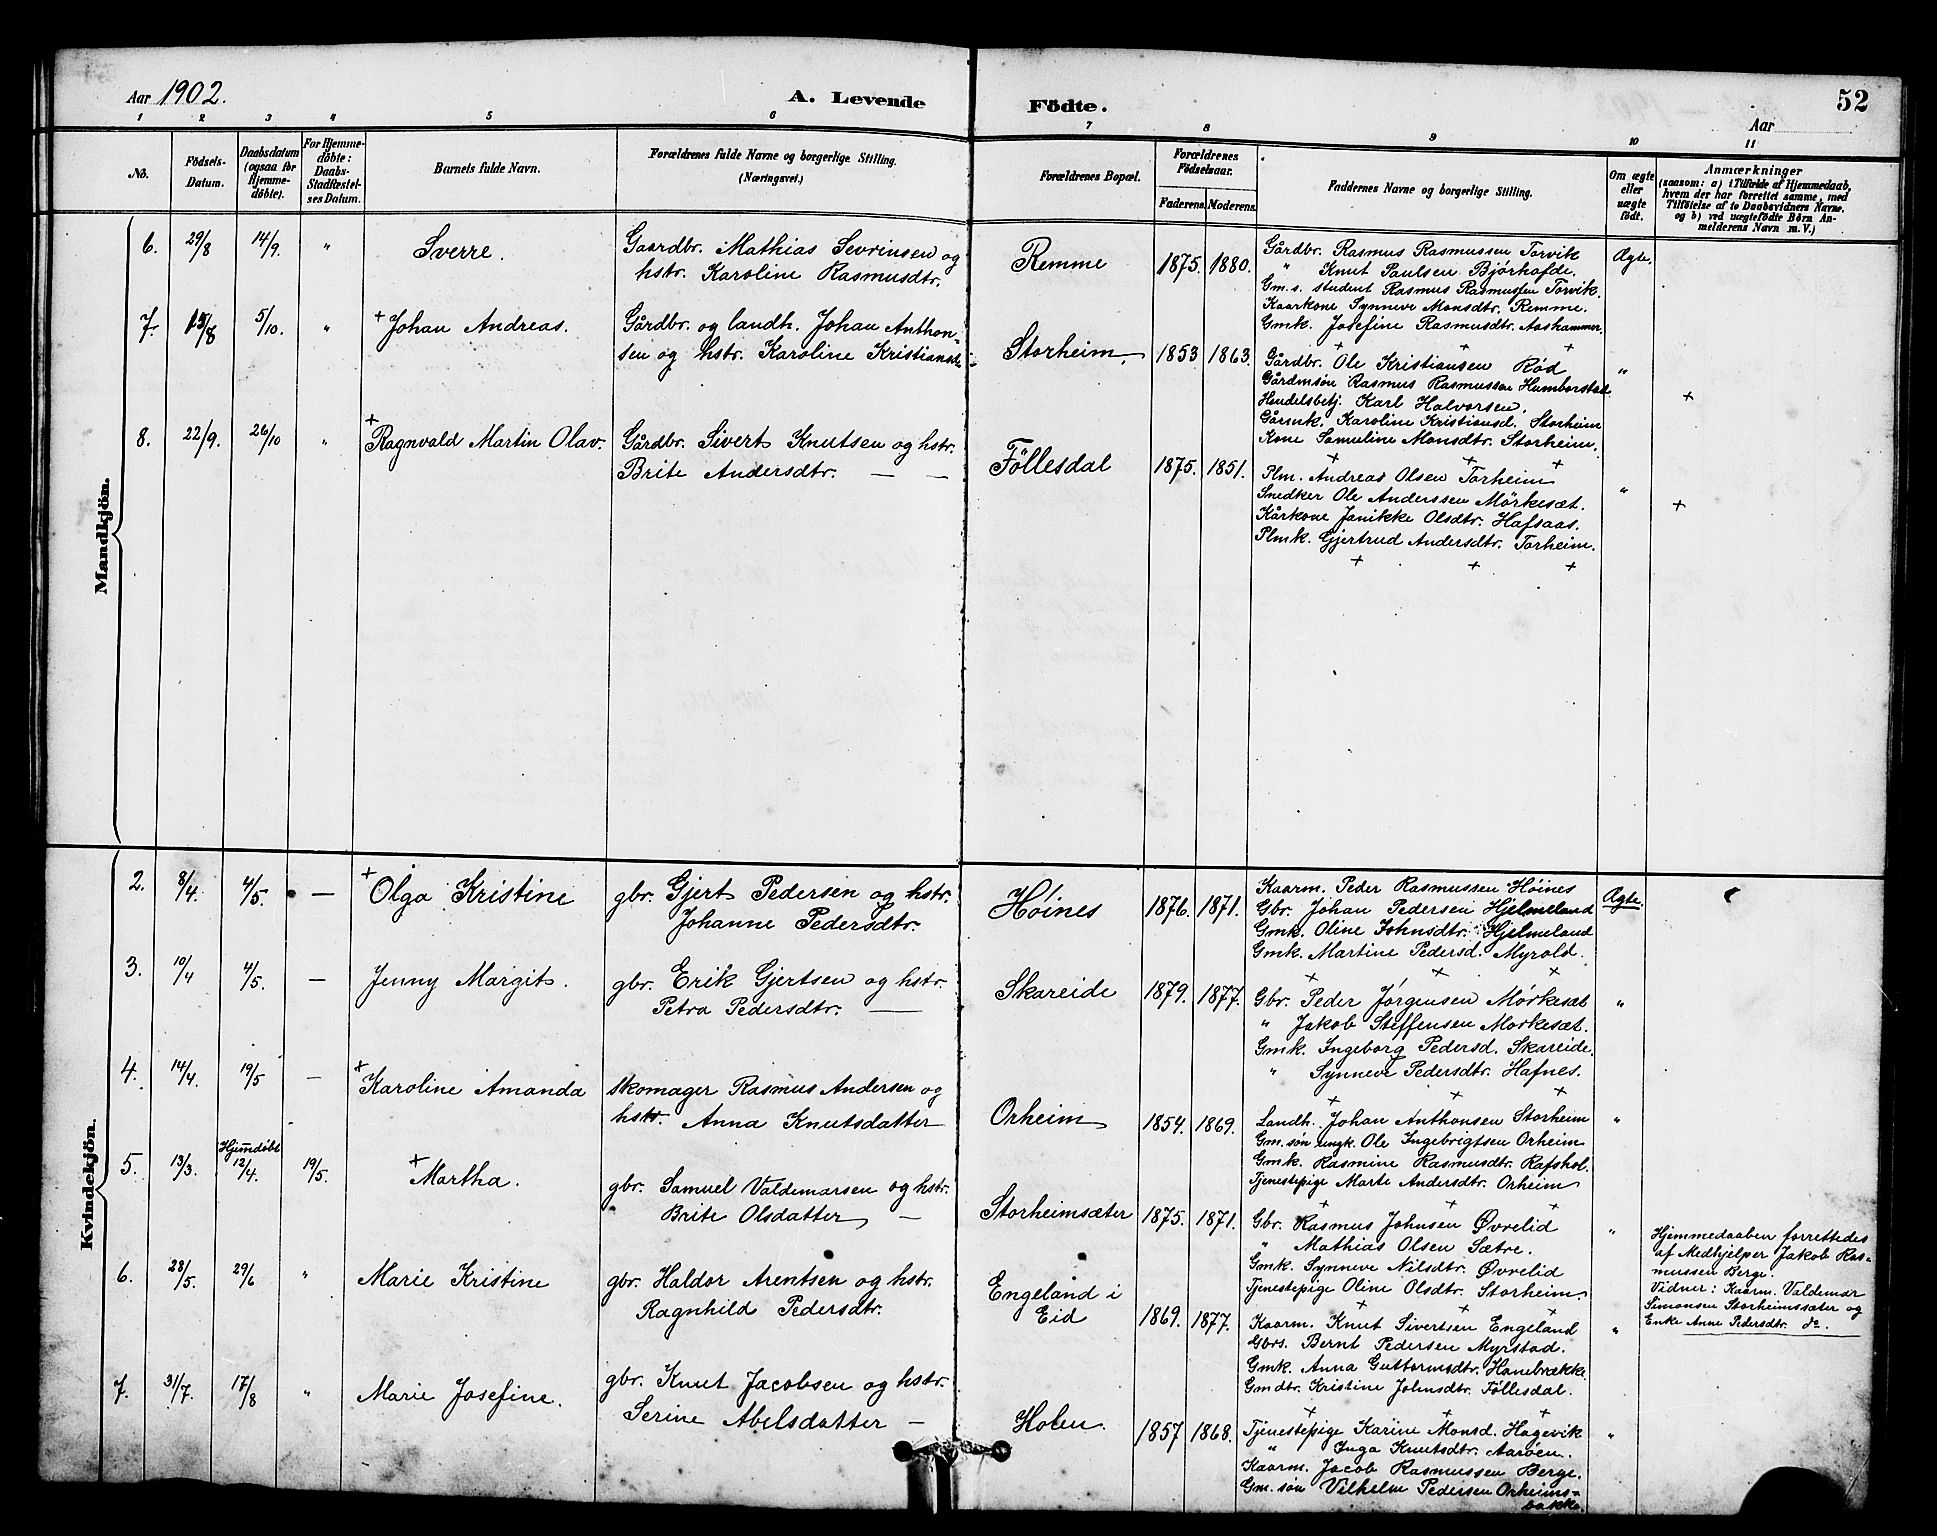 Aar 1902. A. Levende Födte. Aar 52
1 2 3 4 5 6 7 8 9 10 11
No. Födsels-Datum. Daabsdatum (ogsaa for Hjemmedöbte). For Hjemmedöbte: Daabs-Stadfæstelses Datum. Barnets fulde Navn. Forældrenes fulde Navne og borgerlige Stilling. (Næringsvei.) Forældrenes Bopæl. Forældrenes Födselsaar. Faderens. Moderens. Faddernes Navne og borgerlige Stilling. Om ægte eller uægte födt. Anmærkninger (saasom: a) i Tilfælde af Hjemmedaab, hvem der har forrettet samme, med Tilföielse af to Daabsvidners Navne, og b) ved uægtefödte Börn Anmelderens Navn m. V.)
Mandkjön.
6. 29/8 14/9. " Sverre. Gaardbr. Mathias Sevrinsen og
hstr. Karoline Rasmusdtr. Remme 1875. 1880. Ægte.
Gårdbr. Rasmus Rasmussen Torvik
" Knut Paulsen Bjørhafde.
Gm. s. student Rasmus Rasmussen Torvik.
Kaarkone Synneve Monsdtr. Remme.
Gmk. Josefine Rasmusdtr. Aashammer.
+ + +
7. 15/8 5/10. " + Johan Andreas. Gårdbr. og landh. Johan Anthon-
sen og hstr. Karoline Kristiansd. Storheim 1853 1863. "
Gårdbr. Ole Kristiansen Rød
Gårdmsøn Rasmus Rasmussen Humborstad
Handelsbetj. Karl Halvorsen. +
Gårmk. Karoline Kristiansd. Storheim
Kone Samuline Monsdtr. Storheim.
+ + +
8. 22/9. 26/10 " + Ragnvald Martin Olav. Gårdbr. Sivert Knutsen og hstr.
Brite Andersdtr. — — Föllesdal 1875. 1851. "
Plm. Andreas Olsen Torheim
Snedker Ole Anderssen Mörkesæt. +
Kårkone Janikke Olsdtr. Hafsaas.
Plmk. Gjertrud Andersdtr. Torheim.
+ + +
Kvindekjön.
2. 8/4. 4/5. — + Olga Kristine gbr. Gjert Pedersen og hstr.
Johanne Pedersdtr. Höines 1876. 1871. Ægte.
Kaarm. Peder Rasmussen Höines
Gbr. Johan Pedersen Hjelmeland
Gmk. Oline Johnsdtr. Hjelmeland
Gmk. Martine Pedersd. Myrold.
+ + +
3. 10/4 4/5. — Jenny Margit. gbr. Erik Gjertsen og hstr.
Petra Pedersdtr. — Skareide 1879. 1877. "
Gbr. Peder Jörgensen Mörkesæt
" Jakob Steffensen Mörkesæt.
Gmk. Ingeborg Pedersd. Skareide.
" Synneve Pedersdtr. Hafnes.
+ + +
4. 14/4. 19/5 — + Karoline Amanda skomager Rasmus Andersen og
hstr. Anna Knutsdatter Orheim 1854. 1869. "
Landh. Johan Anthonsen Storheim
Gm. søn ungk. Ole Ingebrigtsen Orheim
Gmk. Rasmine Rasmusdtr. Rafshol.
Tjenestepige Marte Andersdtr. Orheim
+ + +
5. 13/3. Hjemdöbt 12/4. 19/5. + Martha. gbr. Samuel Valdemarsen og hstr.
Brite Olsdatter — Storheimsæter 1875. 1871. "
Gbr. Rasmus Johnsen Øvrelid
" Mathias Olsen Sætre.
Gmk. Synneve Nilsdtr. Øvrelid
Tjenestepige Oline Olsdtr. Storheim.
+ + +
Hjemmedaaben forrettedes
af Medhjelper Jakob Ras-
mussen Berge.
Vidner: Kaarm. Valdemar
Simonsen Storheimssæter og
Enke Anne Pedersdtr. do.
6. 28/5. 29/6 " Marie Kristine gbr. Haldor Arentsen og hstr.
Ragnhild Pedersdtr. Engeland i
Eid 1869. 1877. "
Kaarm. Knut Sivertsen Engeland
Gbrs. Bernt Pedersen Myrstad.
Gmk. Anna Guttormsdtr. Hanebrække
Gmdtr. Kristine Johnsdtr. Föllesdal.
+ + +
7. 31/7. 17/8 " Marie Josefine. gbr. Knut Jacobsen og hstr.
Serine Abelsdatter — Holen. 1857 1868. "
Tjenestepige Karine Monsd. Hagevik
" Inga Knutsdtr. Aaröen.
Kaarm. Jacob Rasmussen Berge.
Gm. søn Vilhelm Pedersen Orheims-
bakke.